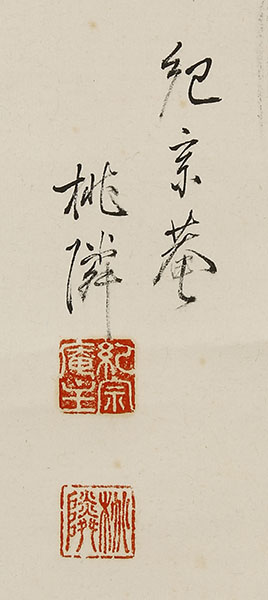 紀宗菴
桃隣
紀宗
庵主
桃
隣